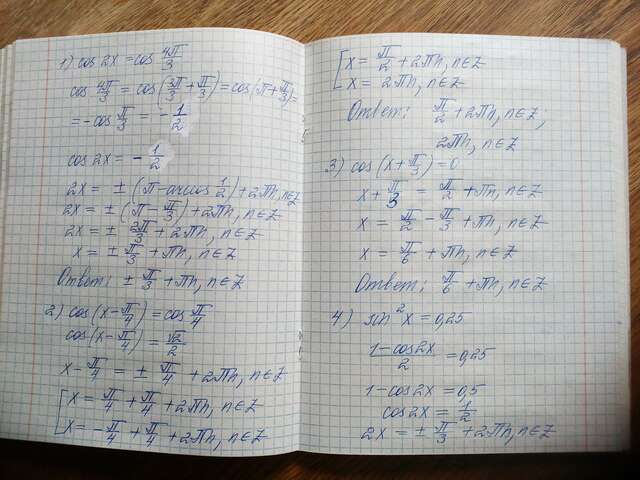 1) cos 2x = cos 4π/3
cos 4π/3 = cos(3π/3 + π/3) = cos(π + π/3) =
= - cos π/3 = - 1/2
cos 2x = - 1/2
2x = ± (π - arccos 1/2) + 2πn, n∈Z
2x = ± (π - π/3) + 2πn, n∈Z
2x = ± 2π/3 + 2πn, n∈Z
x = ± π/3 + πn, n∈Z
Ответ: ± π/3 + πn, n∈Z
2) cos(x - π/4) = cos π/4
cos(x - π/4) = √2/2
x - π/4 = ± π/4 + 2πn, n∈Z
[ x = π/4 + π/4 + 2πn, n∈Z
x = - π/4 + π/4 + 2πn, n∈Z
[ x = π/2 + 2πn, n∈Z
x = 2πn, n∈Z
Ответ: π/2 + 2πn, n∈Z;
2πn, n∈Z
3) cos(x + π/3) = 0
x + π/3 = π/2 + πn, n∈Z
x = π/2 - π/3 + πn, n∈Z
x = π/6 + πn, n∈Z
Ответ: π/6 + πn, n∈Z
4) sin² x = 0,25
1 - cos 2x/2 = 0,25
1 - cos 2x = 0,5
cos 2x = 1/2
2x = ± π/3 + 2πn, n∈Z